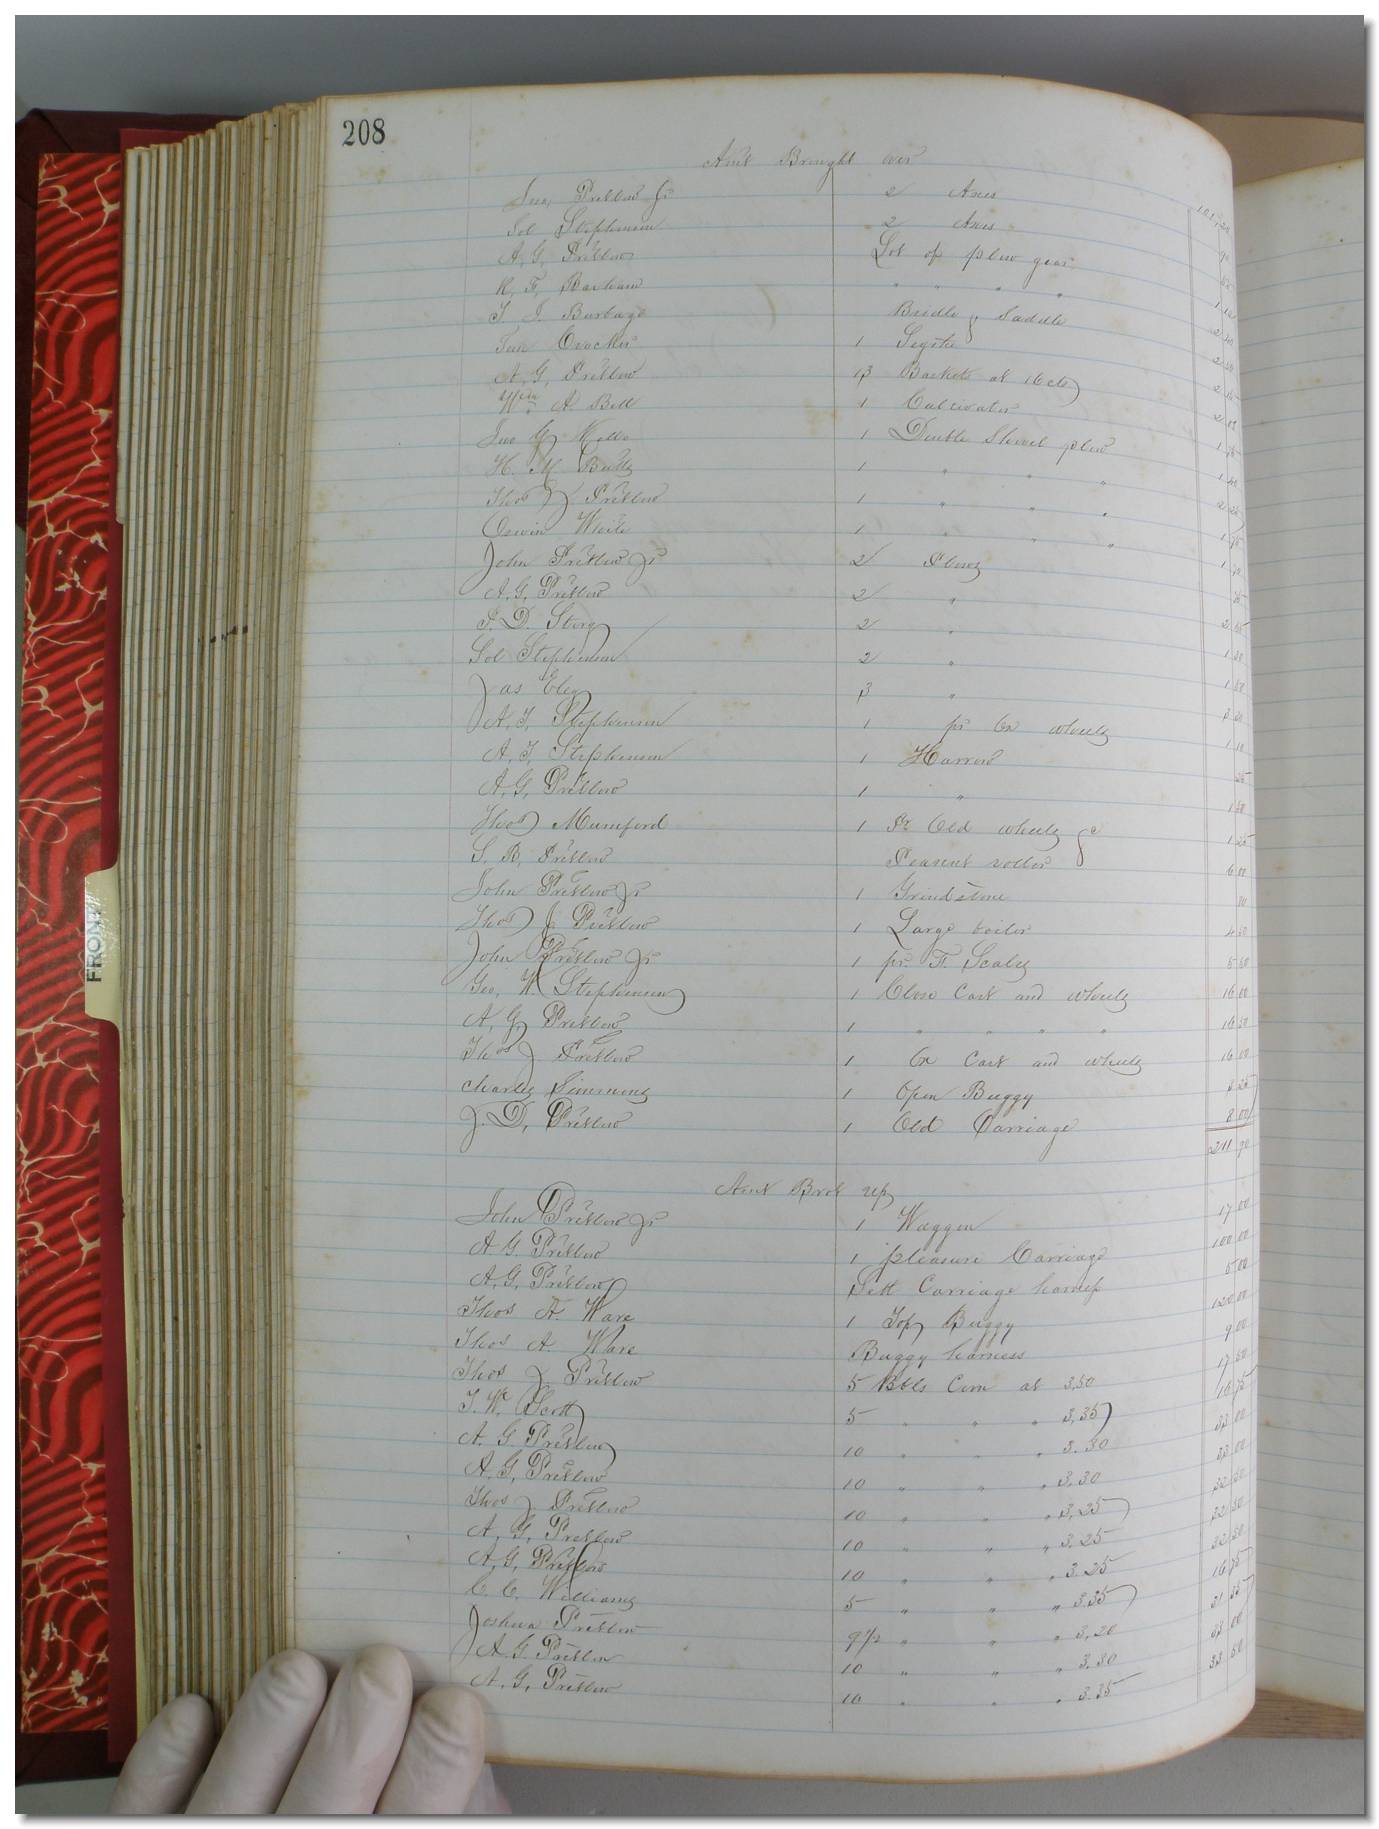 208
Amt Brought over 101,20
Jno, Pretlow Jr 2 Axes
Sol Stephenson 2 Axes
A, G, Pretlow Lot of plow gear
R, F, Barham " " " "
T J. Burbage Bridle & Saddle
Crocker 1 Sythe
A, G, Pretlow 13 Baskets at 16 cts
Wm A. Bell 1 Cultivator
Jno G Wells 1 Double Shovel plow
H. M Butts 1 " " "
Thos J Pretlow 1 " "
Oswin White 1 " " "
John Pretlow Jr 2 Plows
A, G, Pretlow 2 "
P. D. Story 2 "
Sol Stephenson 2 "
Jas Eley 3 "
A, T, Stephenson 1 pr Ox wheels
A, T, Stephenson 1 Harrow
A, G, Pretlow 1 "
Thos Mumford 1 Pr Old wheels &c
S. B, Pretlow Peanut roller
John Pretlow Jr 1 Grindstone
Thos J Pretlow 1 Large boiler 4 50
John Pretlow Jr 1 pr. F. Scales 5 50
Geo, W Stephenson 1 Close Cart and wheels 16 00
A, G, Pretlow 1 " " " " 16 50
Thos J Pretlow 1 Ox Cart and wheels 16 00
Charles Simmons 1 Open Buggy 8 25
J. D, Pretlow 1 Old Carriage 8 00
211 90
Amt Brot up
John Pretlow Jr 1 Waggon 17 00
A G. Pretlow 1 pleasure Carriage 100 00
A, G, Pretlow Sett Carriage harness 5 00
Thos A. Ware 1 Top Buggy 120 00
Thos A Ware Buggy harness 9 00
Thos J Pretlow 5 Bbls Corn at 3,50 17 50
T. W. Scott 5 " " " 3,35 16 75
A. G. Pretlow 10 " 3.30 33 00
A, G, Pretlow 10 " " " 3.30 33 00
Thos J. Pretlow 10 " " " 3,25 32 50
A, G, Pretlow 10 " " " 3.25 32 50
A, G, Pretlow 10 " " " 3.25 32 50
C. C. Williams 5 " " " 3.35 16 75
Joshua Pretlow 9 1/2 " " " 3,20 31 35
A. G. Pretlow 10 " " " 3.30 33 00
A, G, Pretlow 10 " " 3.35 33 50
FRONT